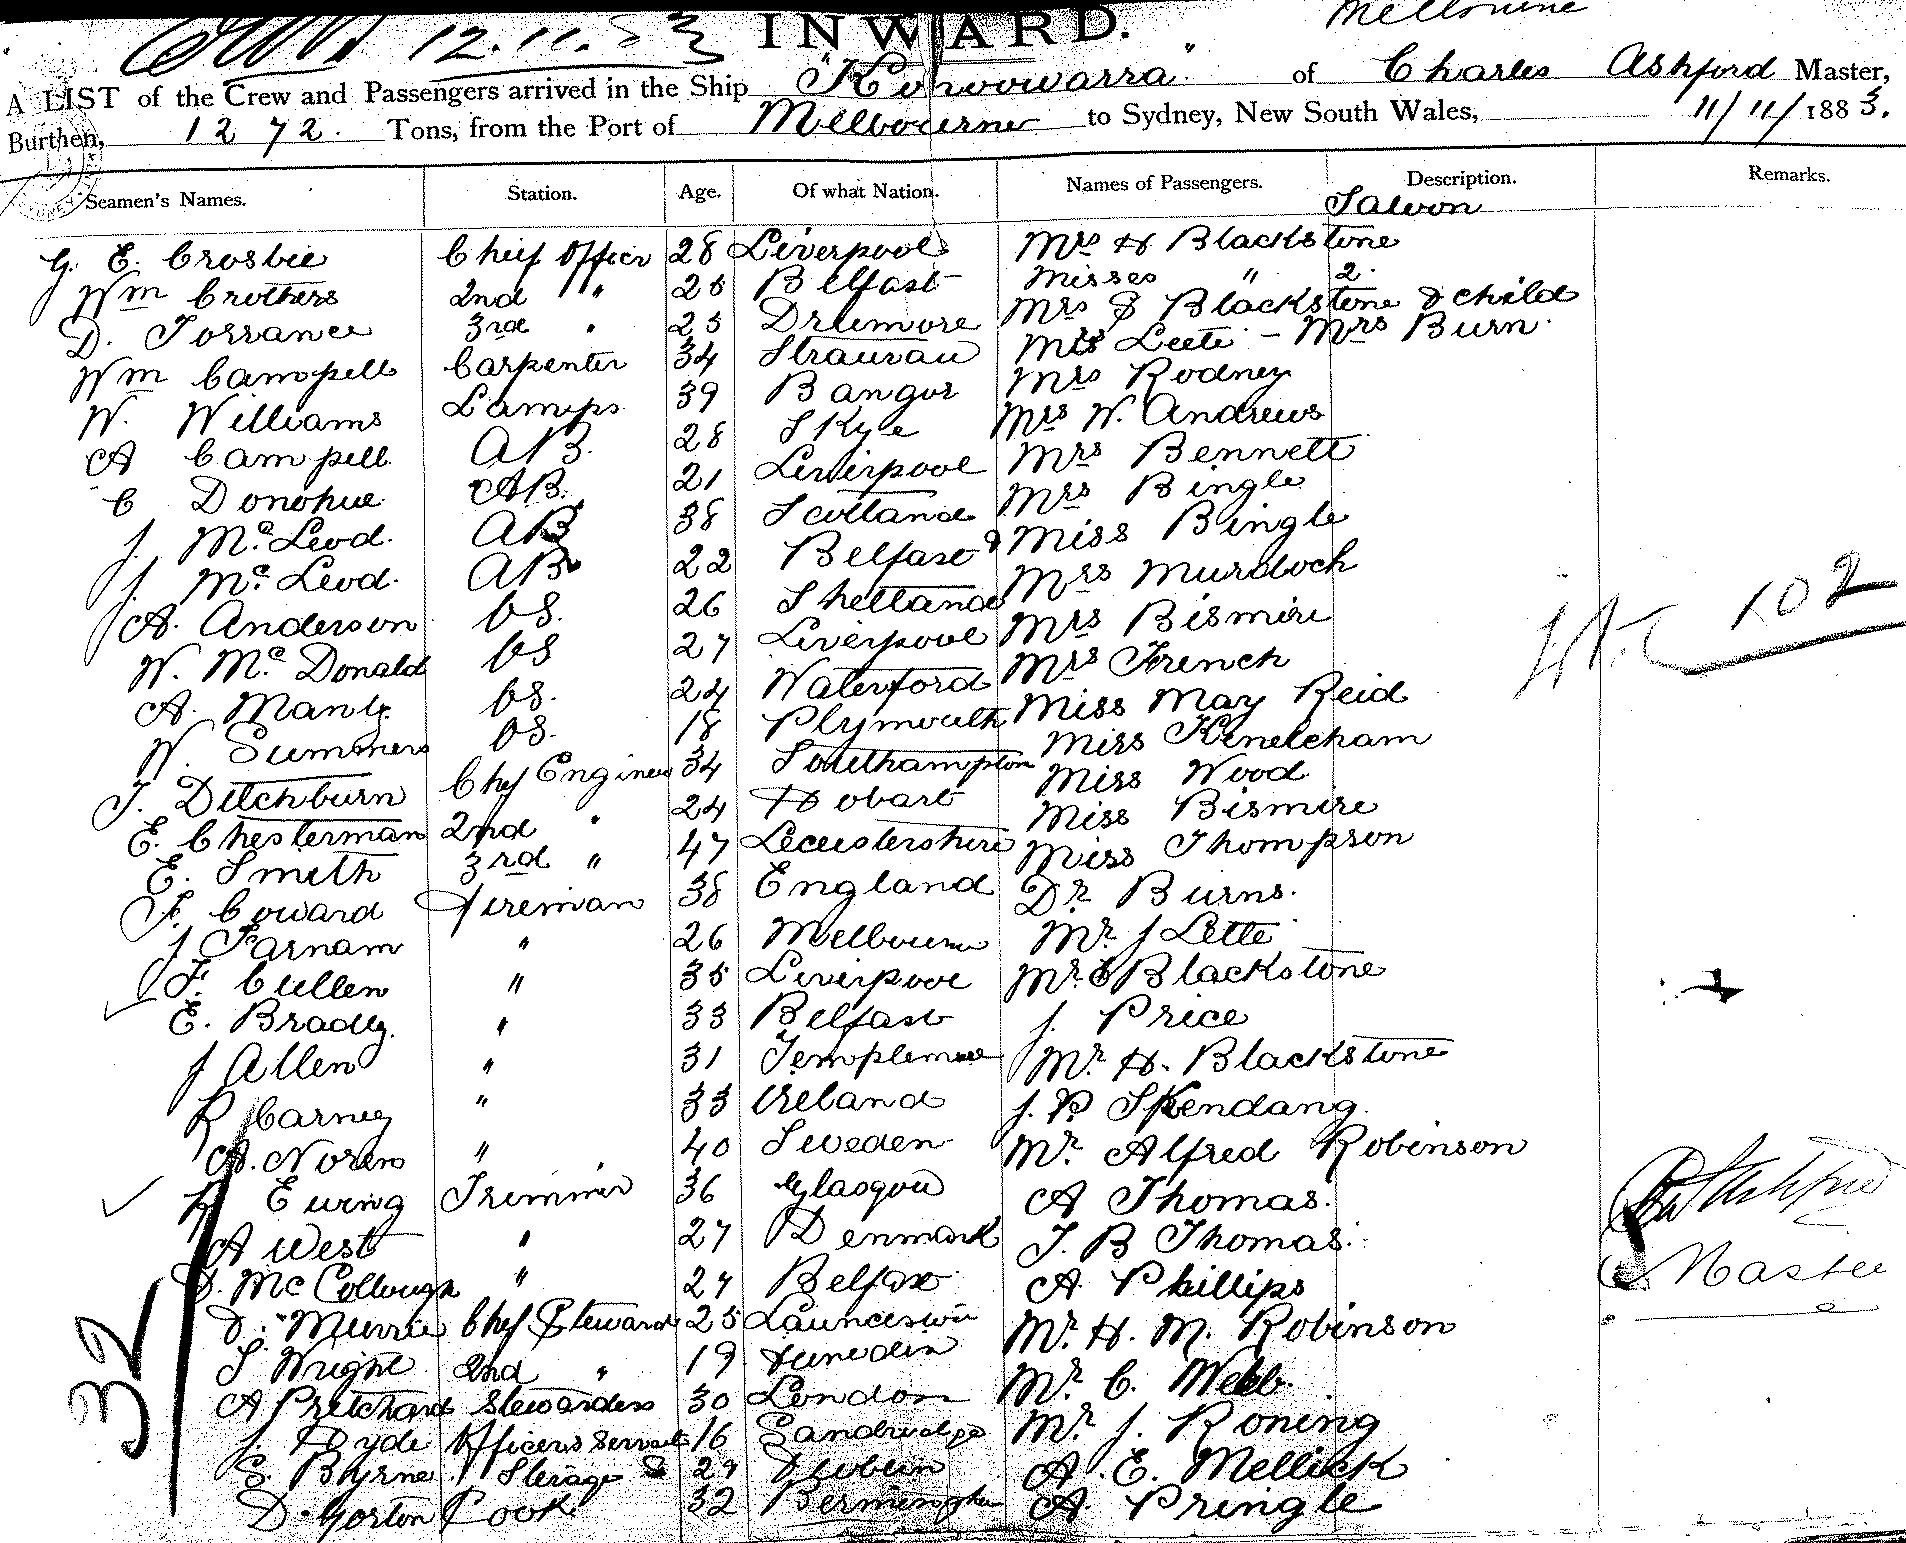 Melbourne
12.11.83 INWARD.
A LIST of the Crew and Passengers arrived in the Ship "Konoowarra" of Charles Ashford Master,
Burthen, 1272. Tons, from the Port of Melbourne to Sydney, New South Wales, 11/11/1883.
Seamen's Names. Station. Age. Of what Nation. Names of Passengers. Description. Remarks.
Saloon
G. E. Crosbie Chief Officer 28 Liverpool Mrs H Blackstone
Wm Crothers 2nd " 28 Belfast Misses " 2.
D. Torrance 3rd " 23 Drumore Mrs S Blackstone & child
Wm Campell Carpenter 34 Stranrau Mrs Leete - Mrs Burn
W. Williams Lamps 39 Bangor Mrs Rodney
A Campell AB. 28 Skye Mrs W. Andrews
C Donohue AB. 21 Liverpool Mrs Bennett
J. McLeod. AB 38 Scotland Mrs Bingle
J. McLeod. AB 22 Belfast Miss Bingle
A. Anderson OS. 26 Shetland Mrs Murdoch
W. McDonald OS 27 Liverpool Mrs Bismire
A. Manly OS. 24 Waterford Mrs French
W. Summers OS. 18 Plymouth Miss May Reid
T. Ditchburn Chef Engineer 34 Southampton Miss Kenelcham
E. Chesterman 2nd " 24 Hobart Miss Wood
E. Smith 3rd " 47 Leceistershire Miss Bismire
F. Coward Fireman 38 England Miss Thompson
J Farnam " 26 Melbourne Dr Burns.
F. Cullen " 35 Liverpool Mr J Lette
E. Brady. " 33 Belfast Mr S Blackstone
J Allen " 31 Templemore J. Price
R Carney " 33 Ireland Mr H. Blackstone
A. Noren " 40 Sweden J. P. Skendang
R Ewing Trimmer 36 Glasgow Mr Alfred Robinson
A West " 27 Denmark A Thomas.
D. McCollough " 27 Belfast T. B Thomas
D. Murrie Chef Steward 25 Launceston A. Phillips
S Wright 2nd " 19 Dunedin Mr H. M. Robinson
A Pretchard Stewardess 30 London Mr C. Webb.
J. Hyde Officers Servant 16 Sandridge Mr J. Roning
S. Byrne Sterage 27 Dublin A. E. Mellick
D. Gorton Cook 32 Bermingham A. Pringle
102
32
Ashford
Master